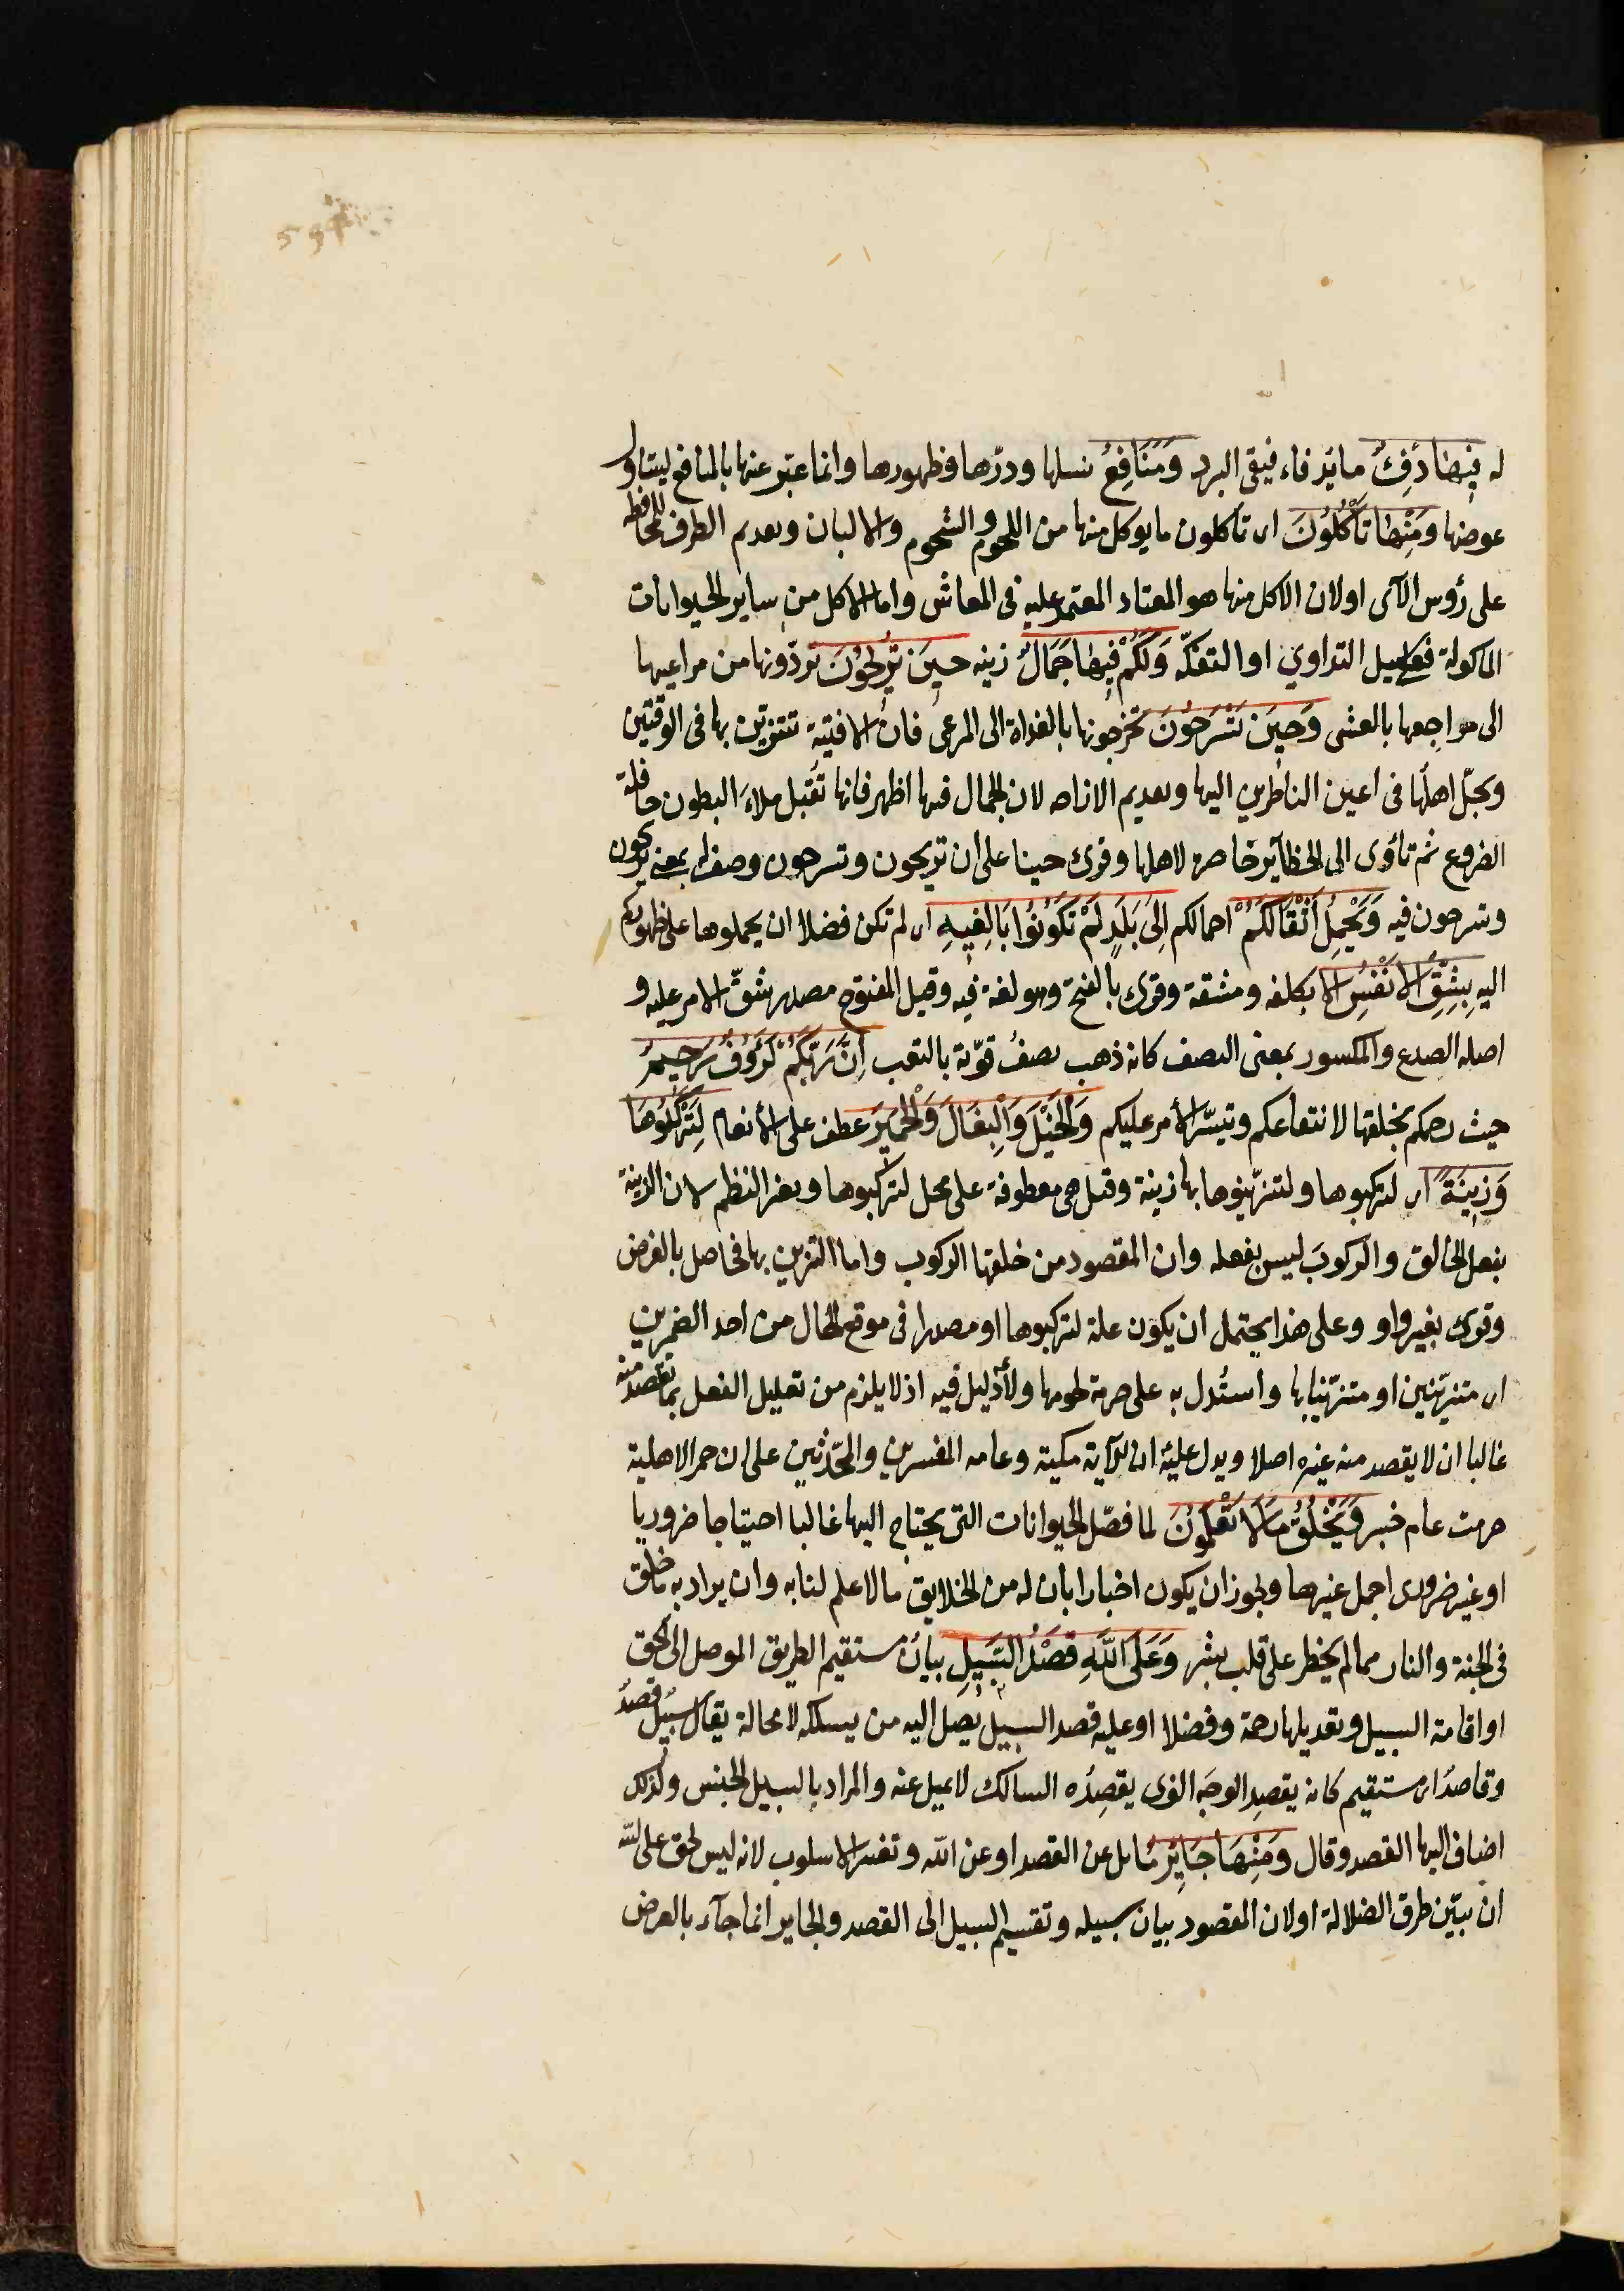 له فِيهَا دِفْءٌ ما يدفاء فيقى البرد وَمَنَافِعُ نسلها ودرّها وظهورها وانما عبّر عنها بالمنافع ليتناول
عوضها وَمِنْهَا تَأْكُلُونَ اى تاكلون ما يوكل منها من اللحوم والشحوم والالبان وتقديم الظرف للمحافظة
على رؤس الآى او لان الاكل منها هو المعتاد المعتمد عليه فى المعاش واما الاكل من ساير الحيوانات
الماكولة فعلى سبيل التداوي او التفكّه وَلَكُمْ فِيهَا جَمَالٌ زينه حِينَ تُرِيحُونَ تردّونها من مراعيها
الى مراجعها بالعشى وَحِينَ تَسْرَحُونَ تخرجونها بالغداة الى المرعى فان الافنية تتزين بها فى الوقتين
ويجلّ اهلها فى اعين الناظرين اليها وتقديم الاراحه لان الجمال فيها اظهر فانها تقبل ملاءَ البطون حافلة
الضروع ثم تأوى الى الحظآير حاضرة لاهلها وقرئ حينا على ان تريحون وتسرحون وصف له بمعنى تريحون
وتسرحون فيه وَتَحْمِلُ أَثْقَالَكُمْ احمالكم إِلَى بَلَدٍ لَمْ تَكُونُوا بَالِغِيهِ اى لم تكن فضلا ان تحملوها على ظهوركم
اليه بِشِقِّ الْأَنْفُسِ الا بكلفه ومشقة وقرئ بالفتح وهو لغة فيه وقيل المفتوح مصدر شقّ الامر عليه و
اصله الصدع والمكسور بمعنى النصف كانه ذهب نصفُ قوّته بالتعب إِنَّ رَبَّكُمْ لَرَؤُوفٌ رَحِيمٌ
حيث رحمكم بخلقها لانتفاعكم وتيسّر الأمر عليكم وَالْخَيْلَ وَالْبِغَالَ وَالْحَمِيرَ عطف على الأنعام لِتَرْكَبُوهَا
وَزِينَةً اى لتركبوها ولتتزيّنوها بها زينة وقيل هى معطوفة على محل لتركبوها وتغير النظم لان الزينة
بفعل الخالق والركوبَ ليس بفعله وان المقصود من خلقها الركوب واما التزين بها فحاصل بالعرض
وقرئ بغير واو وعلى هذا يحتمل ان يكون علة لتركبوها او مصدرا فى موقع الحال من احد الضميرين
اى متزيّنين او متزيّنا بها واستُدل به على حرمة لحومها ولا دليل فيه اذ لا يلزم من تعليل الفعل بما يقصد منه
غالبا ان لا يقصد منه غيره اصلا ويدل عليه ان الآية مكية وعامه المفسرين والمحّدثين على ان حمر الاهلية
حرمت عام خيبر وَيَخْلُقُ مَا لَا تَعْلَمُونَ لما فصّل الحيوانات التى يحتاج اليها غالبا احتياجا ضروريا
او غير ضرورى اجمل غيرها ويجوز ان يكون اخبارا بان له من الخلايق ما لا علم لنا به وان يراد به ما خلق
فى الجنة والنار مما لم يخطر على قلب بشر وَعَلَى اللَّهِ قَصْدُ السَّبِيلِ بيان مستقيم الطريق الموصل الى الحق
او اقامة السبيل وتعديلها رحمة وفضلا او عليه قصد السبيل يصل اليه من يسلكه لا محالة يقال سبيل قصدٌ
وقاصدٌ اى مستقيم كانه يقصد الوجه الذى يقصِدُه السالك لا يميل عنه والمراد بالسبيل الجنس ولذلك
اضاف اليها القصد وقال وَمِنْهَا جَائِرٌ مايل عن القصد او عن الله وتغيير الاسلوب لانه ليس بحق على الله
ان يبيّن طرق الضلالة او لان المقصود بيان سبيله وتقسيم السبيل الى القصد والجاير انما جآء بالعرض